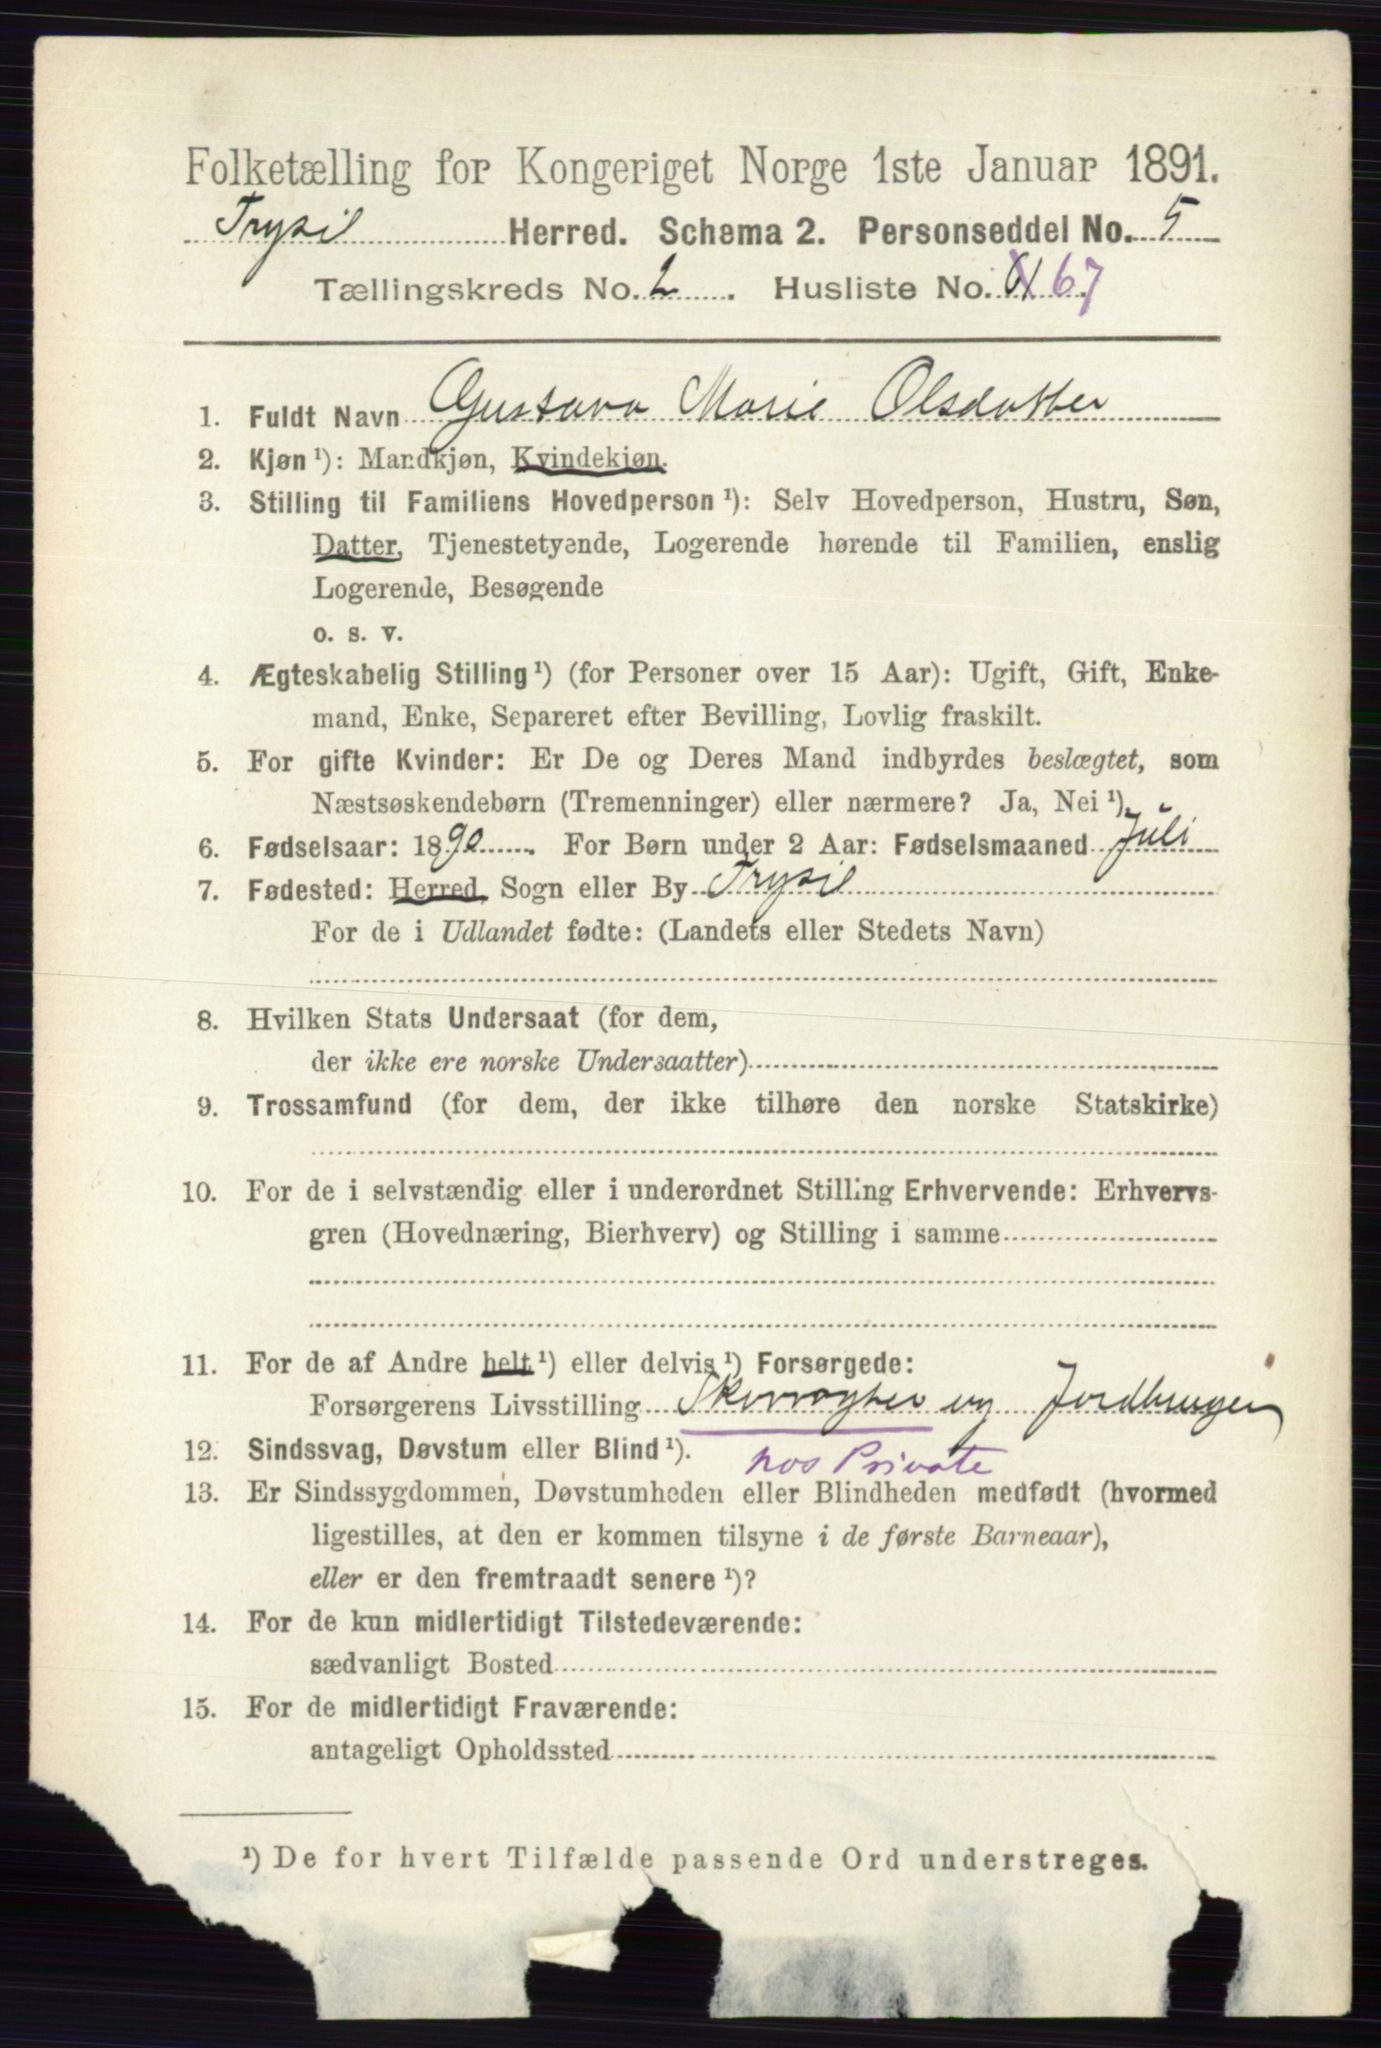 Folketælling for Kongeriget Norge 1ste Januar 1891.
Trysil Herred. Schema 2. Personseddel No. 5
Tællingskreds No. 2. Husliste No. 67
1. Fuldt Navn Gustava Marie Olsdatter
2. Kjøn ¹): Mandkjøn, Kvindekjøn.
3. Stilling til Familiens Hovedperson ¹): Selv Hovedperson, Hustru, Søn,
Datter, Tjenestetyende, Logerende hørende til Familien, enslig
Logerende, Besøgende
o. s. v.
4. Ægteskabelig Stilling ¹) (for Personer over 15 Aar): Ugift, Gift, Enke-
mand, Enke, Separeret efter Bevilling, Lovlig fraskilt.
5. For gifte Kvinder: Er De og Deres Mand indbyrdes beslægtet, som
Næstsøskendebørn (Tremenninger) eller nærmere? Ja, Nei ¹).
6. Fødselsaar: 1890. For Børn under 2 Aar: Fødselsmaaned Juli
7. Fødested: Herred, Sogn eller By Trysil
For de i Udlandet fødte: (Landets eller Stedets Navn)
8. Hvilken Stats Undersaat (for dem,
der ikke ere norske Undersaatter)
9. Trossamfund (for dem, der ikke tilhøre den norske Statskirke)
10. For de i selvstændig eller i underordnet Stilling Erhvervende: Erhvervs-
gren (Hovednæring, Bierhverv) og Stilling i samme
11. For de af Andre helt ¹) eller delvis ¹) Forsørgede:
Forsørgerens Livsstilling Skovvogter og Jordbruger
12. Sindssvag, Døvstum eller Blind ¹).
hos Private
13. Er Sindssygdommen, Døvstumheden eller Blindheden medfødt (hvormed
ligestilles, at den er kommen tilsyne i de første Barneaar),
eller er den fremtraadt senere ¹)?
14. For de kun midlertidigt Tilstedeværende:
sædvanligt Bosted
15. For de midlertidigt Fraværende:
antageligt Opholdssted
¹) De for hvert Tilfælde passende Ord understreges.